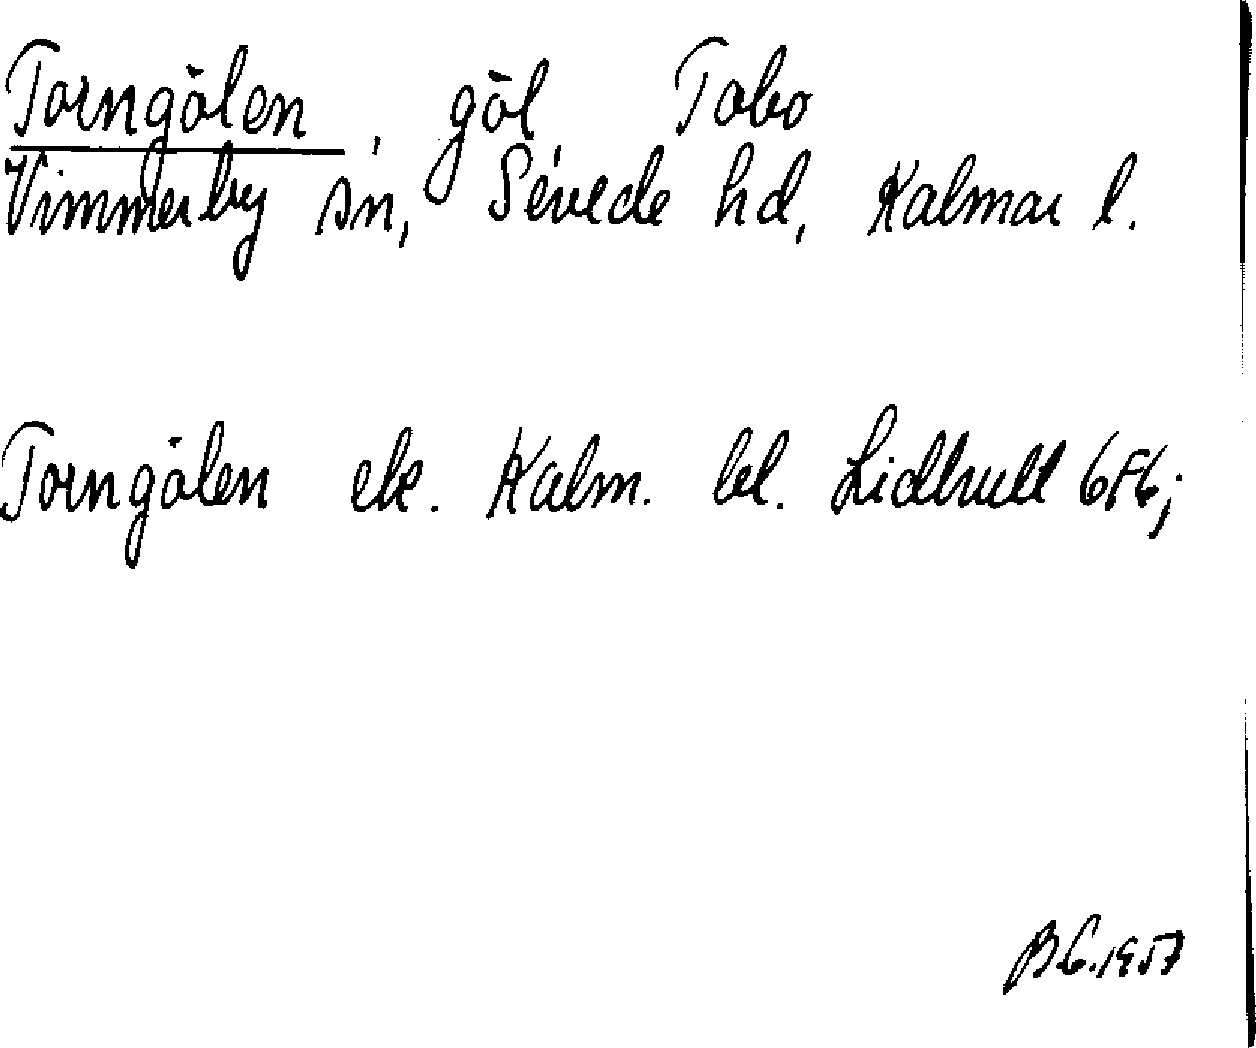 Torngölen, göl Tobo
Vimmerby sn, Sevede hd, Kalmar l.
Torngölen ek. Kalm. bl. Lidhult 686;
B.G. 1957